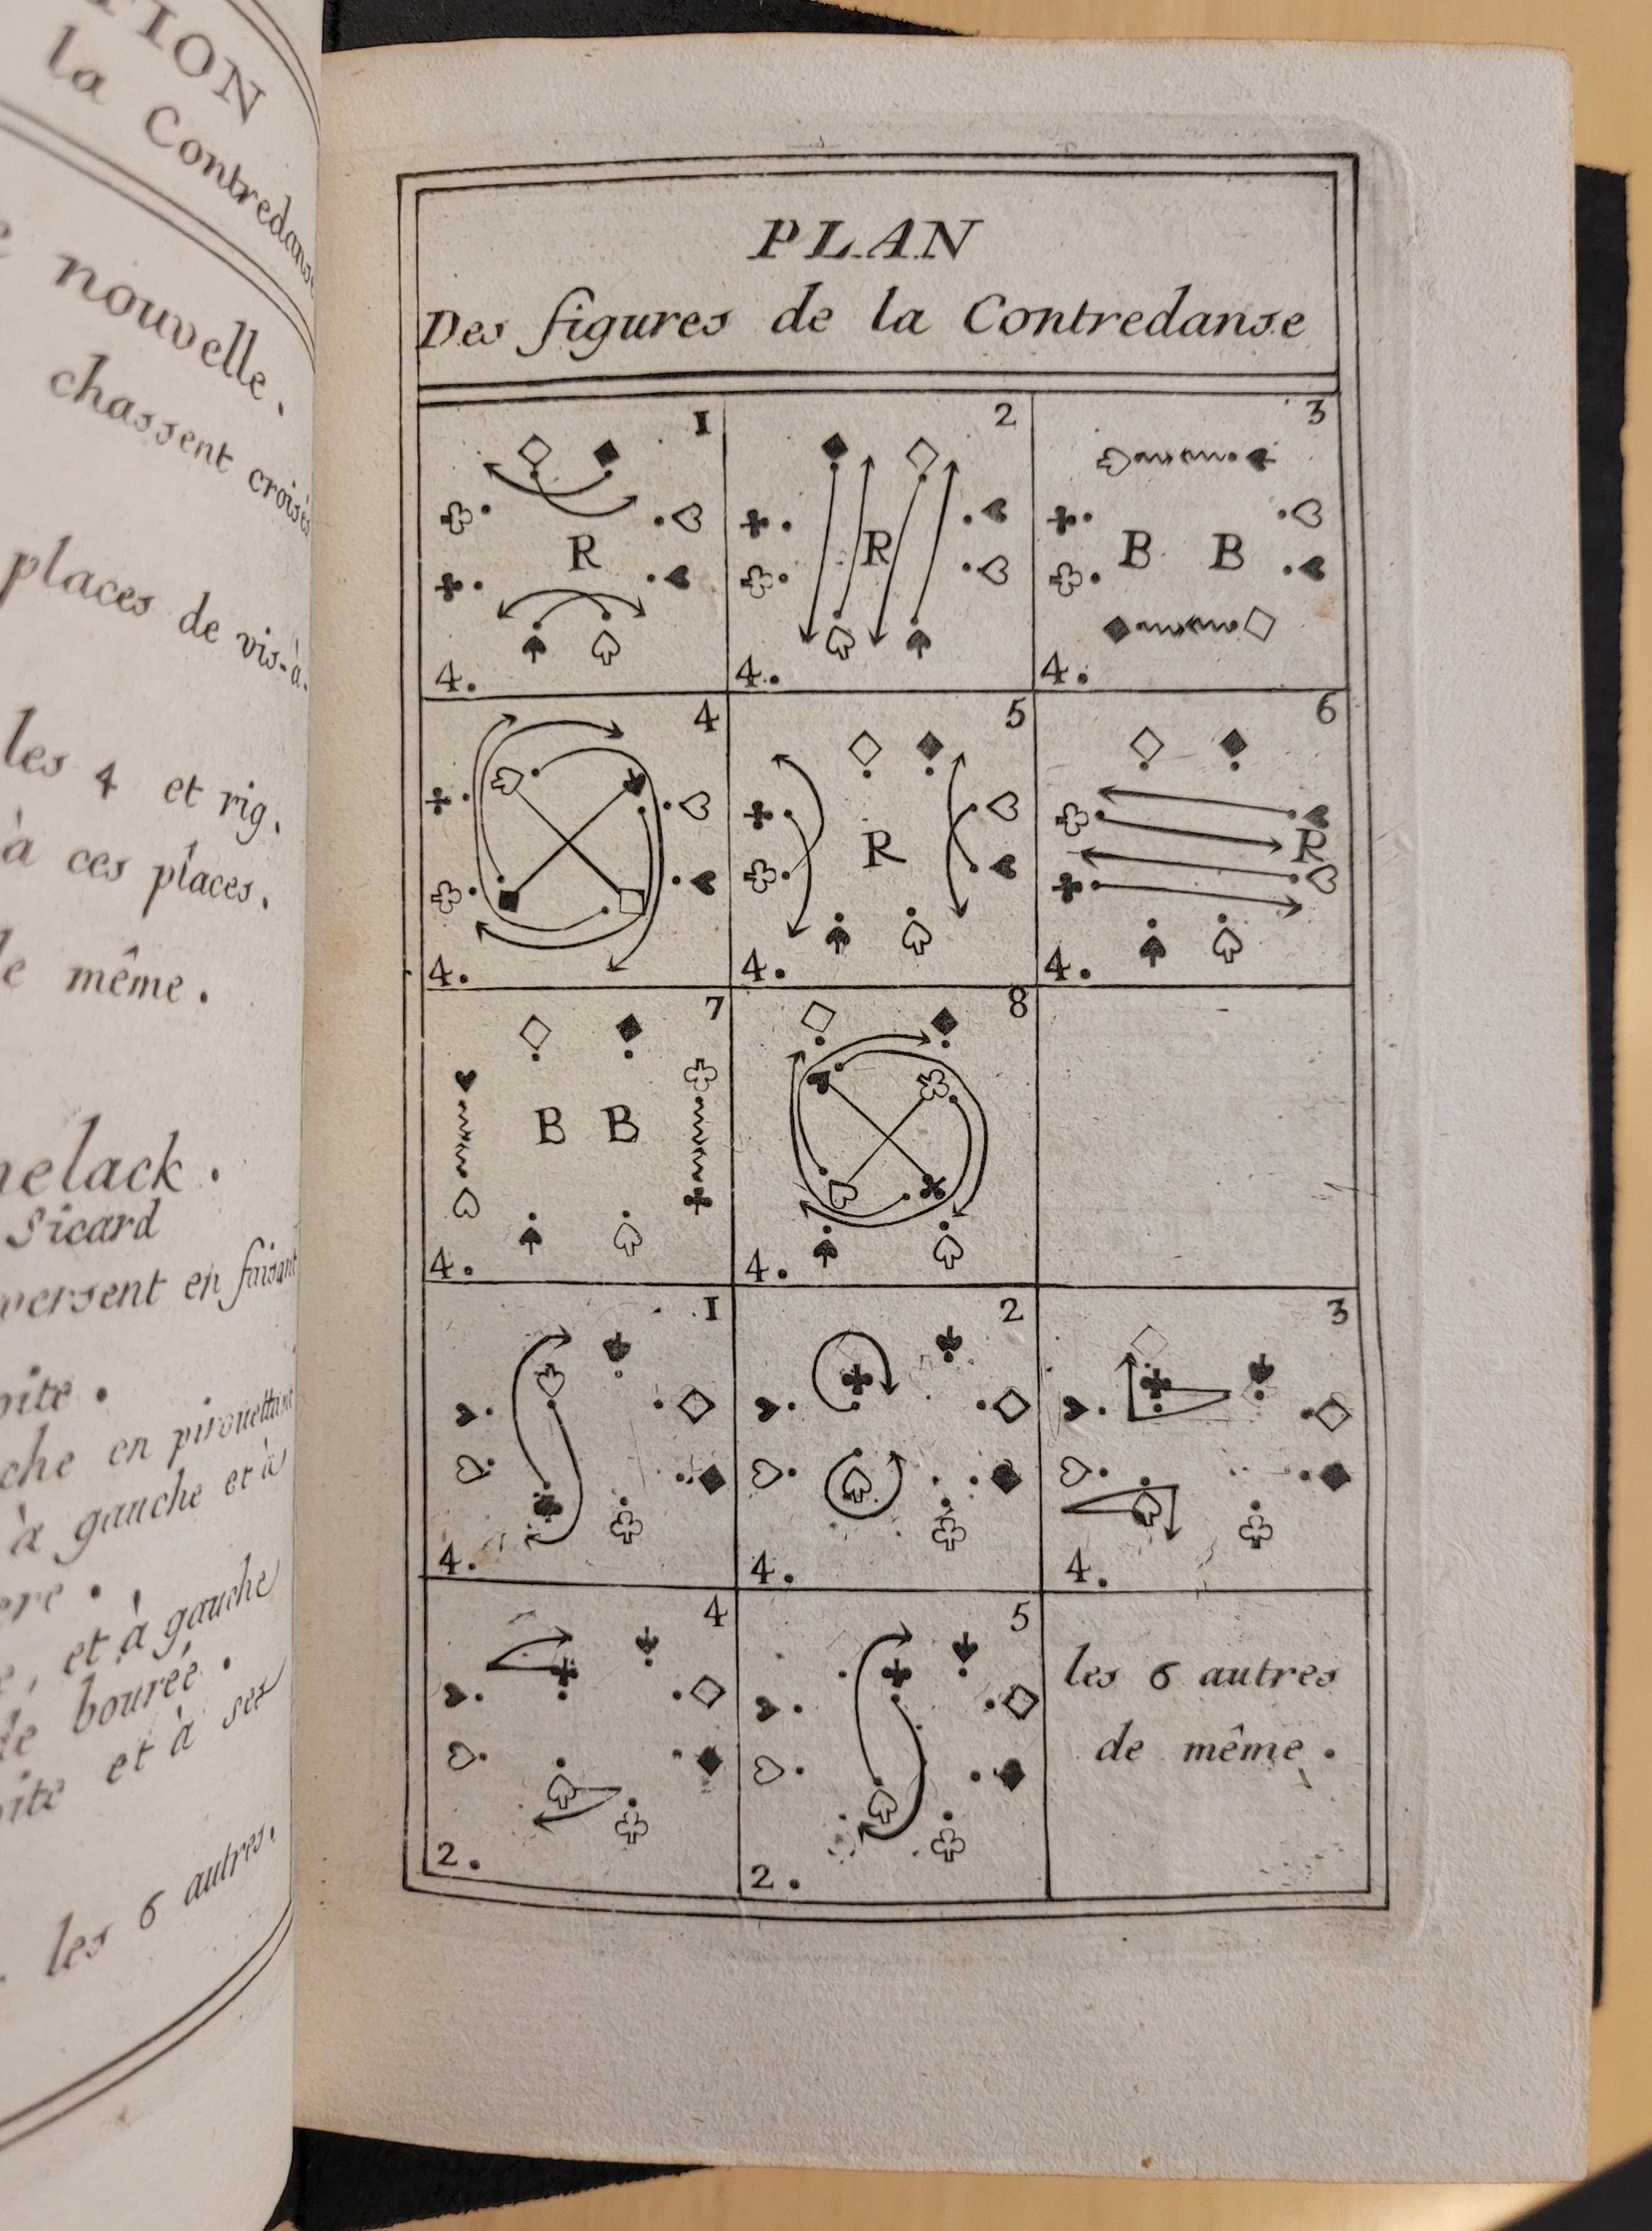 TION
la Contredanse
nouvelle.
chassent croisés
places de vis-à-
les 4 et rig.
à ces places.
de même.
Sicard
en faisant
en pirouettant
à gauche et à
et à gauche
de bourée.
et à ses
les 6 autres.
PLAN
Des figures de la Contredanse
1
R
4.
2
R
4.
3
B B
4.
4
4.
5
R
4.
6
R
4.
7
B B
4.
8
4.
1
4.
2
4.
3
4.
4
2.
5
2.
les 6 autres
de même.